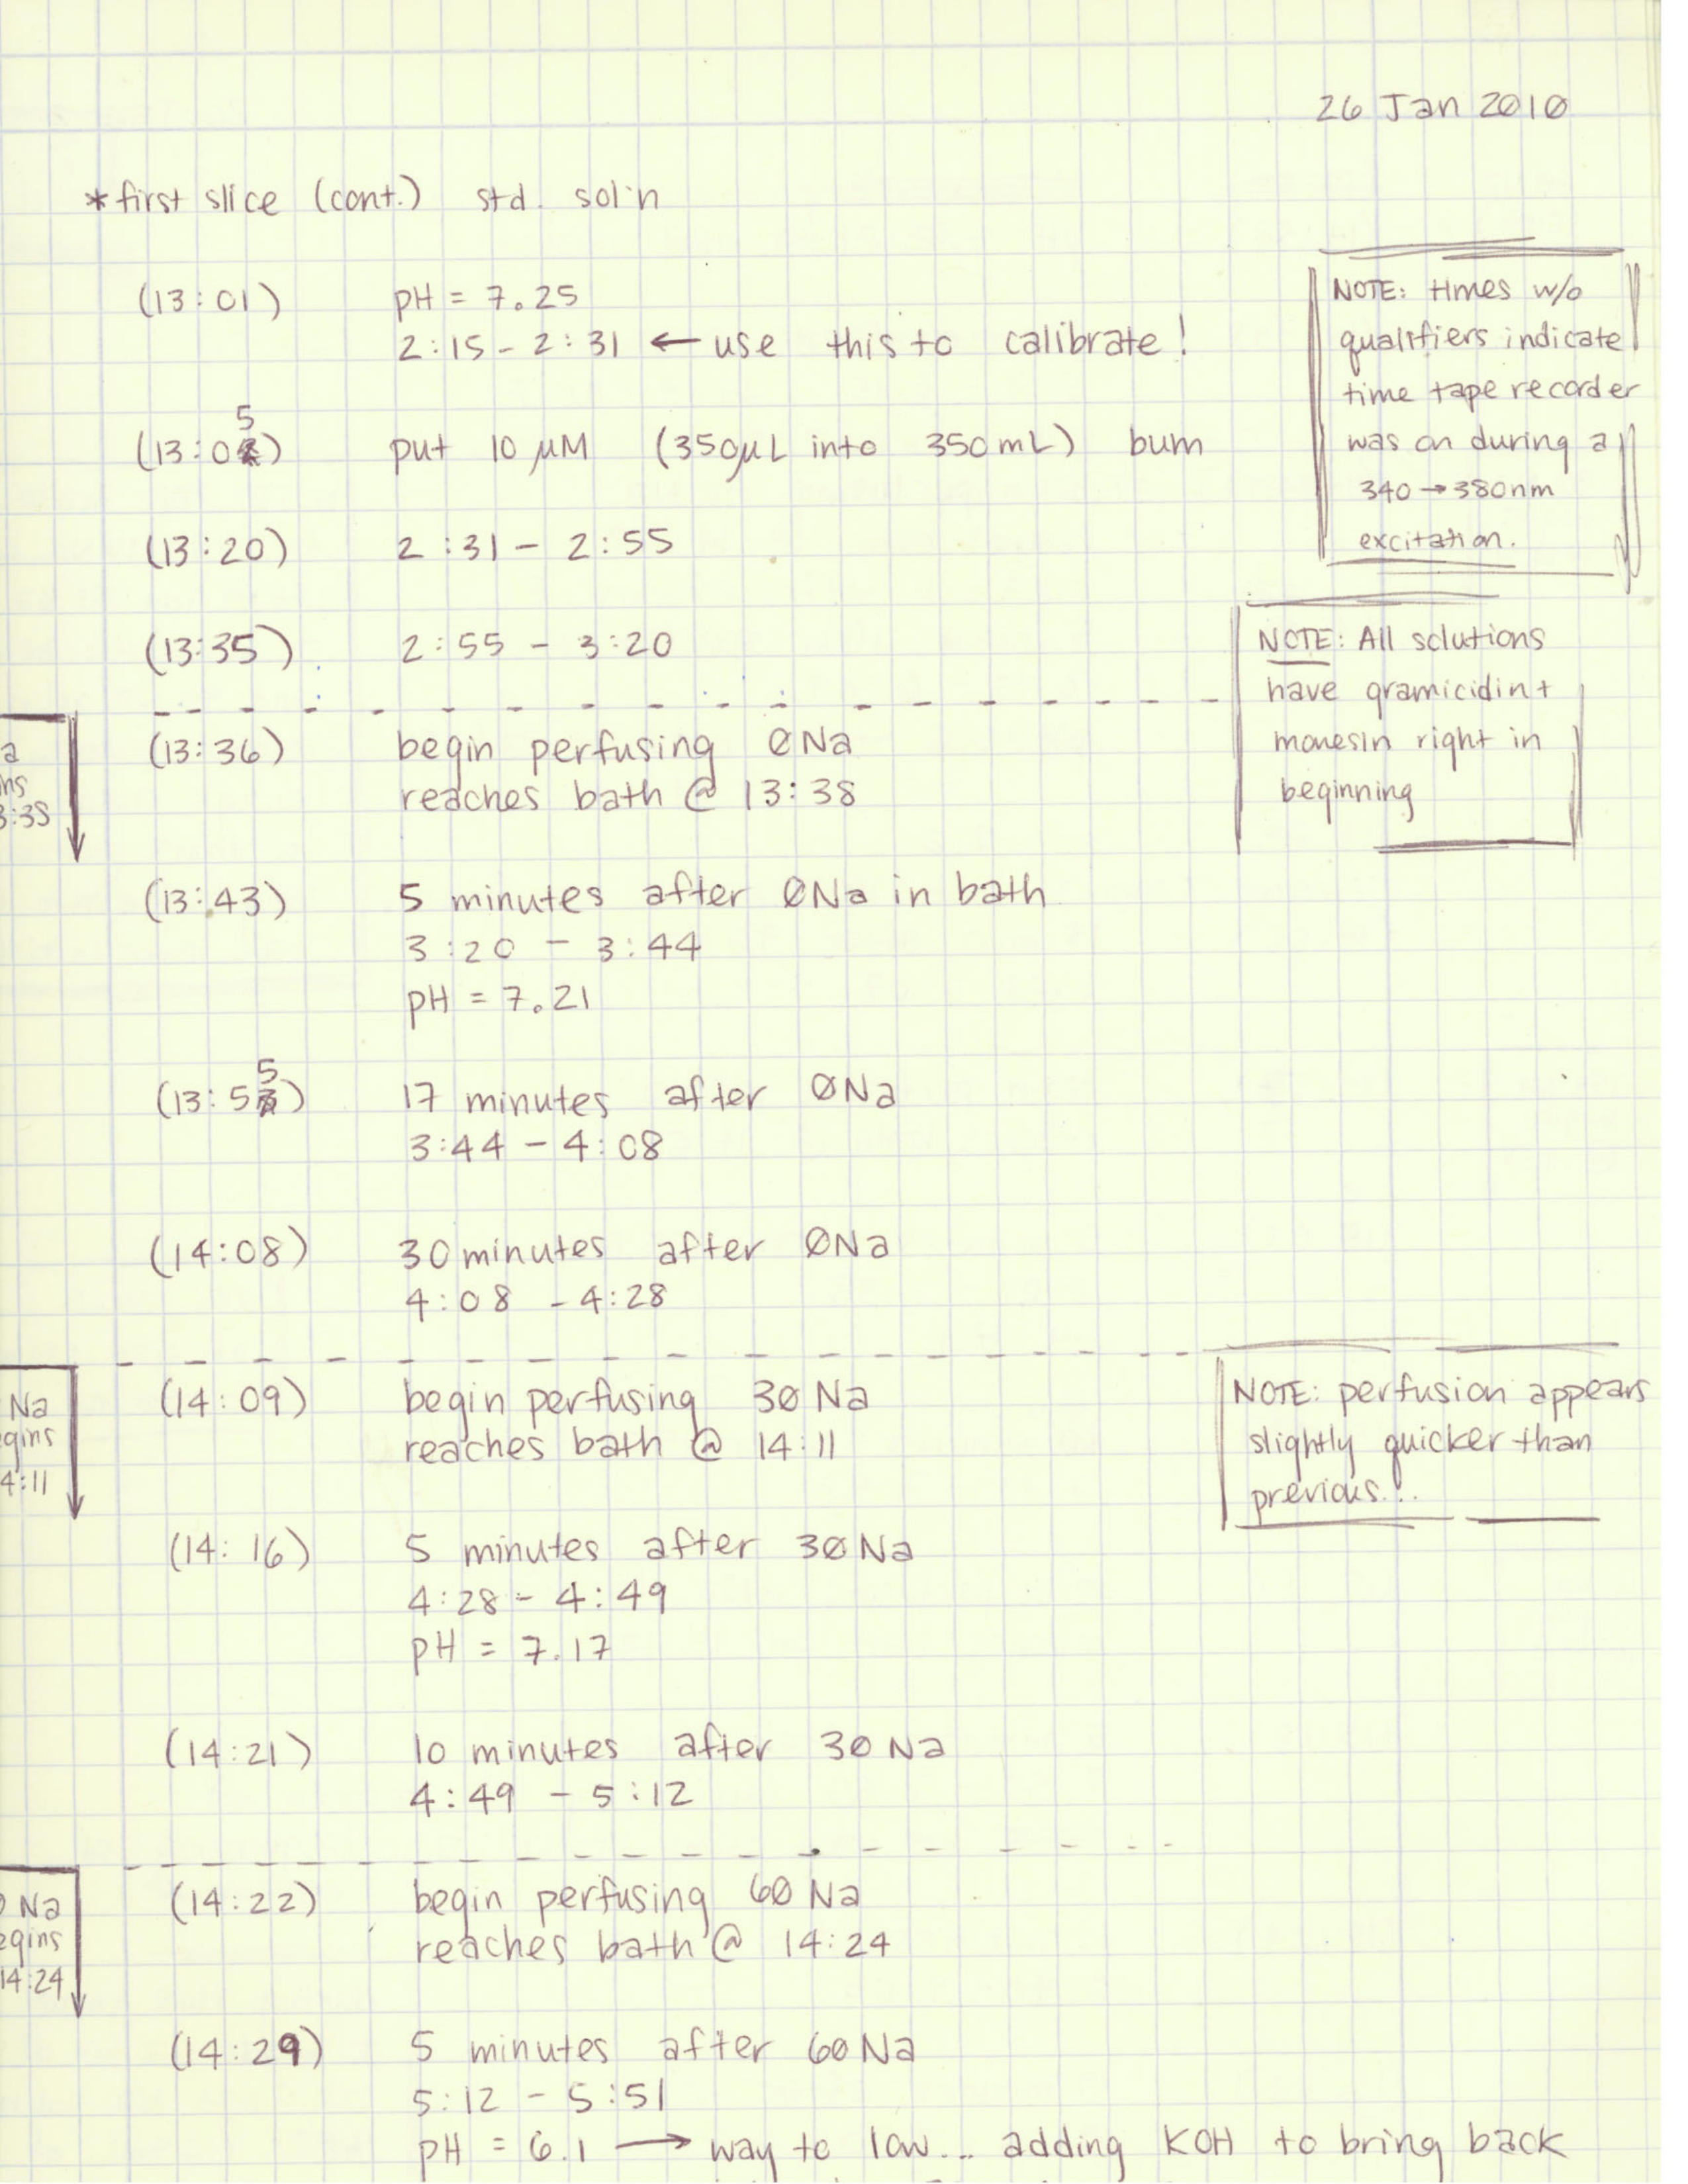 26 Jan 2010
*first slice (cont.) std. sol'n
(13:01) pH = 7.25
2:15 - 2:31 ← use this to calibrate!
NOTE: times w/o
qualifiers indicate
time tape recorder
was on during a
340 → 380nm
excitation.
(13:05) put 10 µM (350µL into 350mL) bum
(13:20) 2:31 - 2:55
(13:35) 2:55 - 3:20
NOTE: All solutions
have gramicidin +
monesin right in
beginning
(13:36) begin perfusing ØNa
reaches bath @ 13:38
a
ns
3:38
(13:43) 5 minutes after ØNa in bath
3:20 - 3:44
pH = 7.21
(13:55) 17 minutes after ØNa
3:44 - 4:08
(14:08) 30 minutes after ØNa
4:08 - 4:28
(14:09) begin perfusing 3Ø Na
reaches bath @ 14:11
Na
gins
4:11
NOTE: perfusion appears
slightly quicker than
previous...
(14:16) 5 minutes after 3Ø Na
4:28 - 4:49
pH = 7.17
(14:21) 10 minutes after 3Ø Na
4:49 - 5:12
(14:22) begin perfusing 6Ø Na
reaches bath @ 14:24
Na
egins
14:24
(14:29) 5 minutes after 6Ø Na
5:12 - 5:51
pH = 6.1 → way to low... adding KOH to bring back